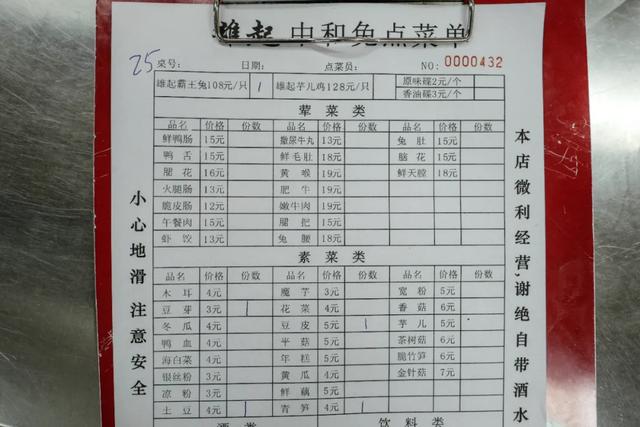 雄起 中和兔点菜单
25 桌号: 日期: 点菜员: NO: 0000432
雄起霸王兔108元/只 1 雄起芋儿鸡128元/只 原味碟2元/个
香油碟3元/个
荤菜类
品名 价格 份数 品名 价格 份数 品名 价格 份数
鲜鸭肠 15元 撒尿牛丸 13元 兔肚 15元
鸭舌 15元 鲜毛肚 18元 脑花 15元
腰花 16元 黄喉 19元 鲜天膛 18元
火腿肠 13元 肥牛 19元
脆皮肠 12元 嫩牛肉 19元
午餐肉 15元 腿把 15元
虾饺 13元 兔腰 18元
素菜类
品名 价格 份数 品名 价格 份数 品名 价格 份数
木耳 4元 魔芋 3元 宽粉 5元
豆芽 3元 1 花菜 4元 香菇 6元
冬瓜 4元 豆皮 5元 1 芋儿 5元
鸭血 4元 平菇 5元 茶树菇 6元
海白菜 4元 年糕 5元 脆竹笋 6元
银丝粉 3元 黄瓜 4元 金针菇 7元
凉粉 3元 鲜藕 5元
土豆 4元 1 青笋 4元 1
酒类 饮料类
小心地滑 注意安全
本店微利经营,谢绝自带酒水